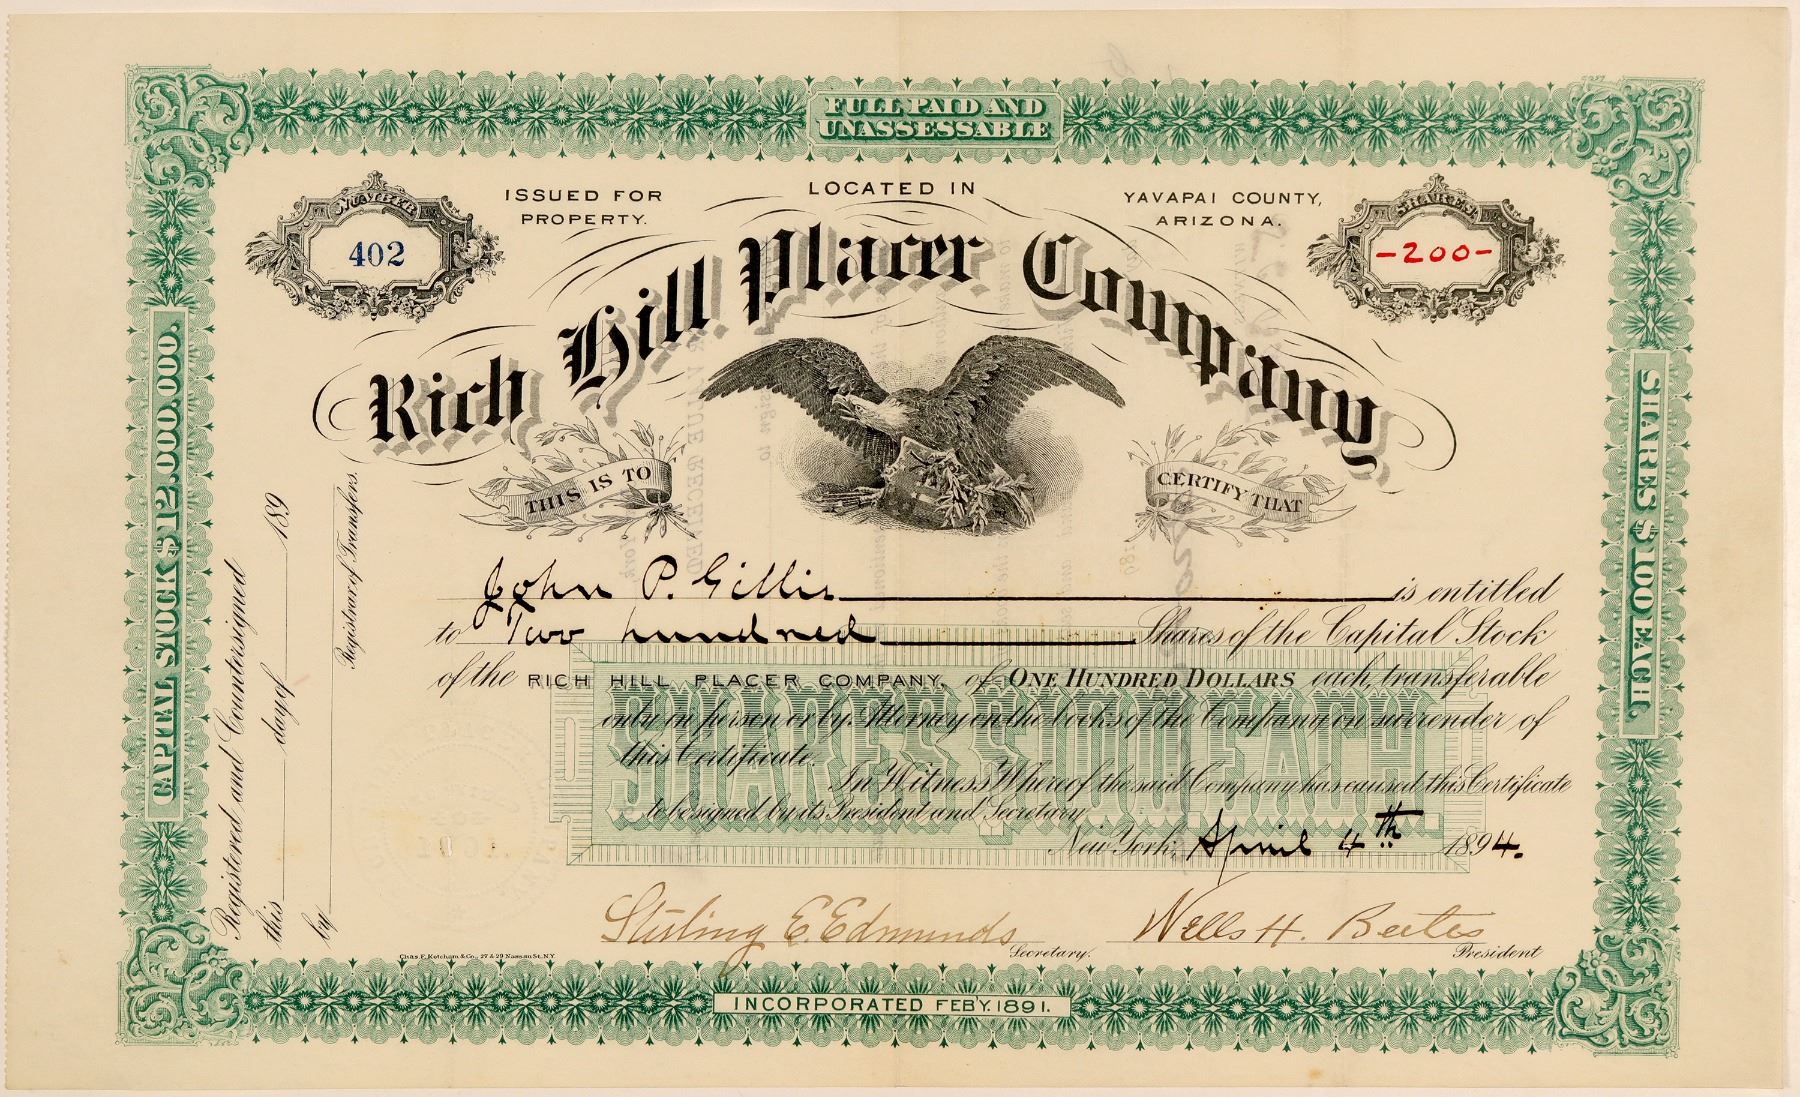 FULL PAID AND
UNASSESSABLE
NUMBER
402
ISSUED FOR
PROPERTY.
LOCATED IN
YAVAPAI COUNTY,
ARIZONA.
SHARES
-200-
Rich Hill Placer Company
THIS IS TO
CERTIFY THAT
John P. Gillis is entitled
to Two hundred Shares of the Capital Stock
of the RICH HILL PLACER COMPANY, of ONE HUNDRED DOLLARS each, transferable
only in person or by Attorney on the books of the Company on surrender of
this Certificate.
In Witness Whereof the said Company has caused this Certificate
to be signed by its President and Secretary
New York, April 4th 1894.
SHARES $100 EACH.
Sterling E. Edmunds
Secretary.
Wells H. Bates
President
Chas. F. Ketcham & Co., 27 & 29 Nassau St., N.Y.
INCORPORATED FEB'Y. 1891.
CAPITAL STOCK $12,000,000.
Registered and Countersigned
this day of 189
by
Registrar of Transfers.
SHARES $100 EACH.